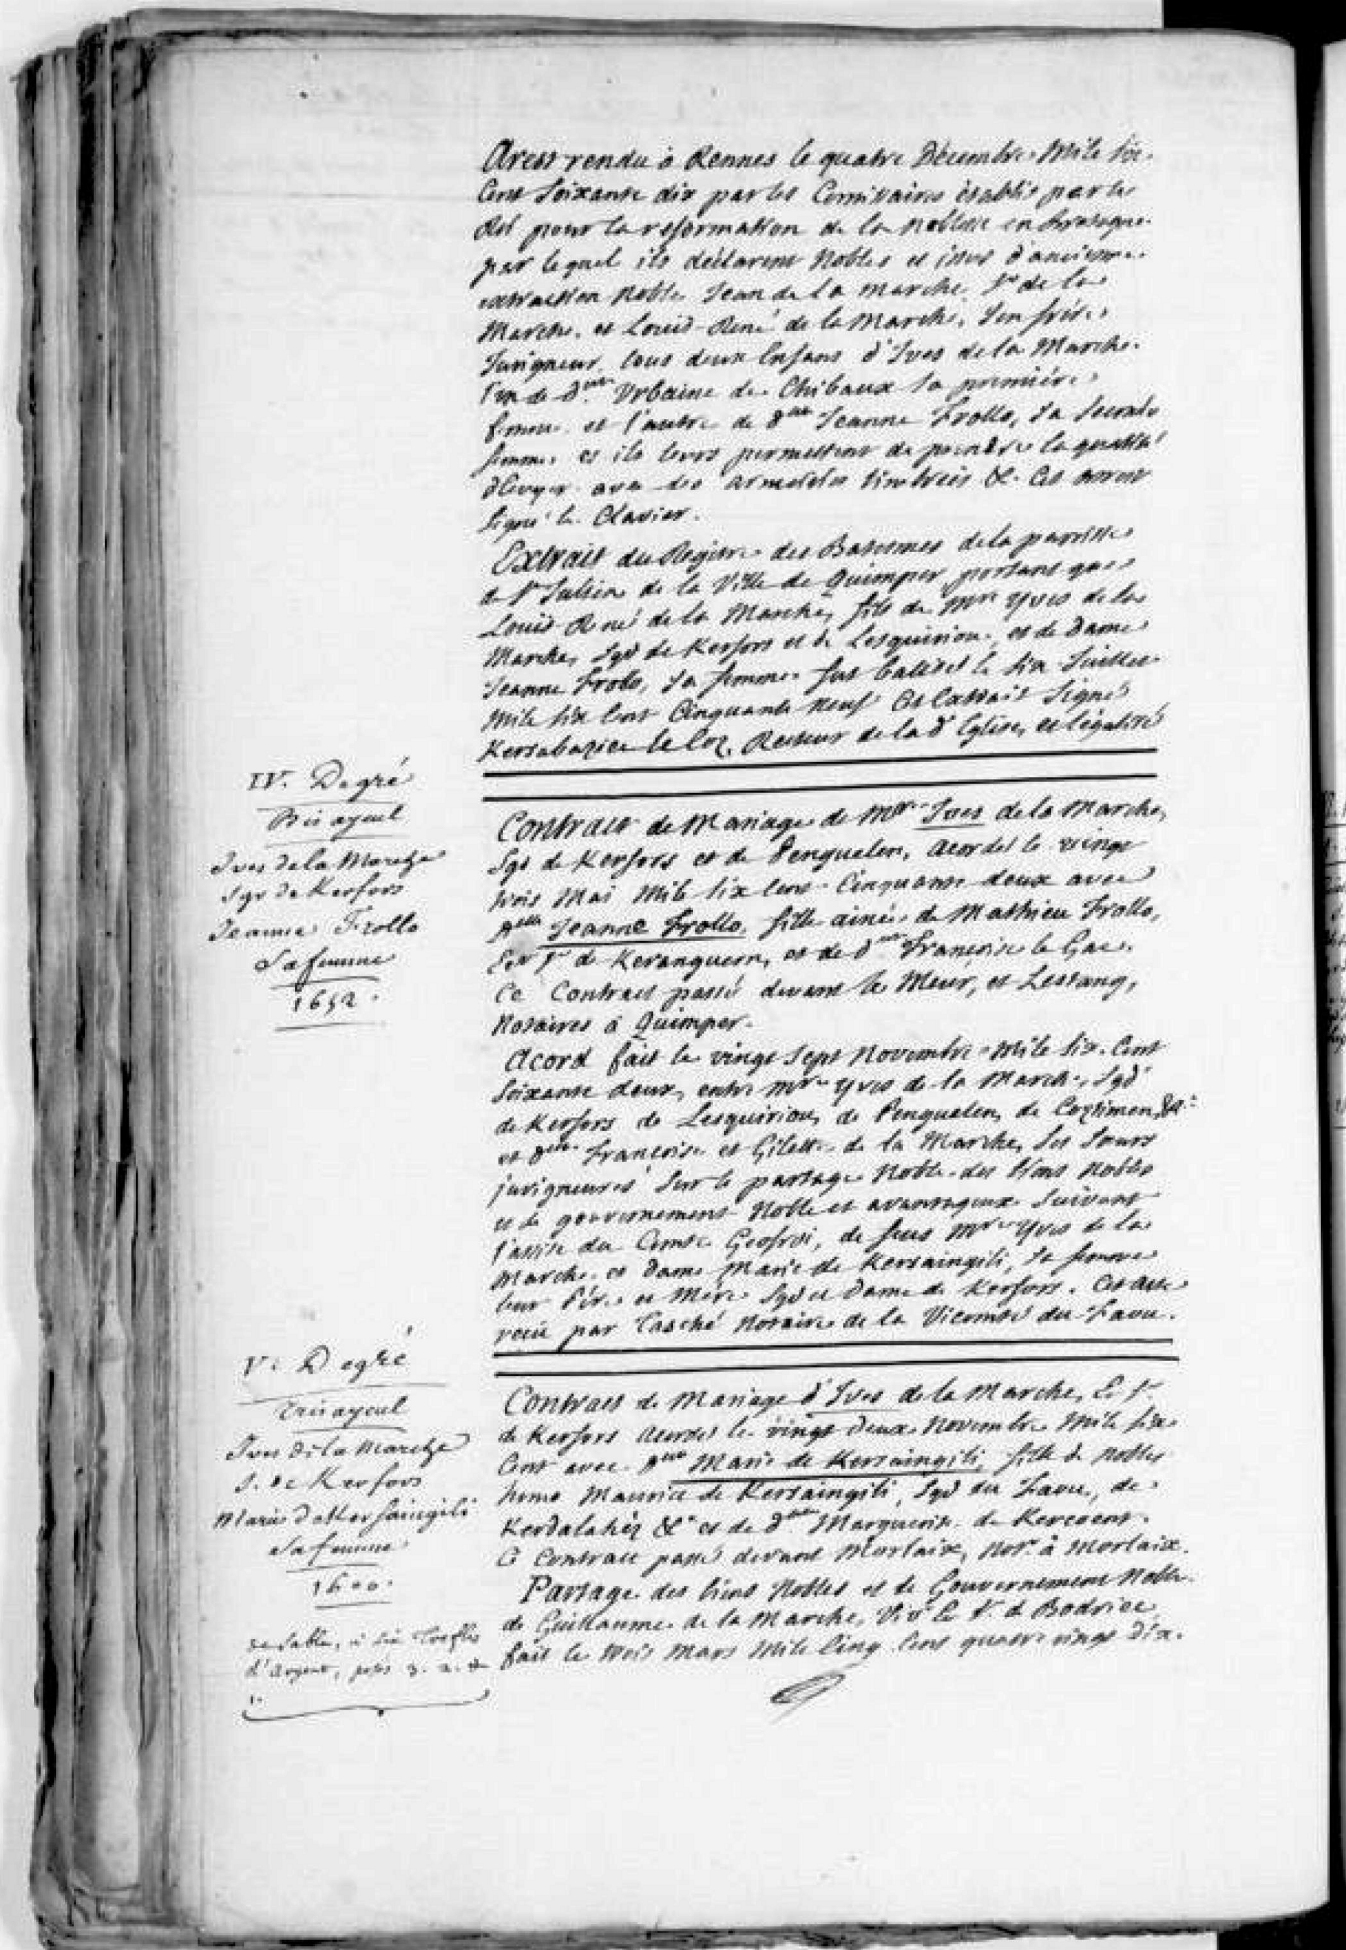 Arest rendu à Rennes le quatre Décembre Mile six
Cent soixante dix par les Comissaires établis par le
Roi pour la reformation de la Noblesse en Bretagne
par lequel ils déclarent Nobles et issus d'ancienne
extraction Noble Jean de la Marche, Sr de la
Marche, et Louis-René de la Marche, son frère
Juvigneur, tous deux Enfans d'Ives de la Marche
l'un de dlle Urbaine de Chibaux sa première
femme et l'autre de dlle Jeanne Frollo, sa seconde
femme, et ils leurs permettent de prendre la qualité
d'Ecuyer avec des armoiries timbrées &c. Cet arrest
signé le Clavier.
Extrait du Registre des Batesmes de la parroisse
de St Julien de la Ville de Quimper, portant que
Louis René de la Marche, fils de Mre Yves de la
Marche, Sgr de Kerfors et de Lesquiriou, et de Dame
Jeanne Frollo, sa femme, fut batisé le six Juillet
Mile six Cent Cinquante neuf Cet Extrait signé
le Loz, Recteur de la de Eglise, et légalisé
IV. Degré
Bisayeul
Ives de la Marche
Sgr de Kerfors
Jeanne Frollo
Sa femme
1652.
Contract de Mariage de Mre Ives de la Marche,
Sgr de Kerfors et de Penguelen, acordé le vingt
trois Mai Mile six Cent Cinquante deux avec
dlle Jeanne Frollo, fille ainée de Mathieu Frollo,
Ecr Sr de Keranguern, et de dlle Francoise le Gac.
Ce Contract passé devant le Meur, et Lestang,
Notaires à Quimper.
Acord fait le vingt sept Novembre Mile six Cent
soixante deux, entre Mre Yves de la Marche, Sgr
de Kerfors de Lesquiriou, de Penguelen, de Coztimen, &c:
et dlles Francoise et Gilette de la Marche, ses sœurs
juvigneures sur le partage Noble des biens nobles
et de gouvernement Noble et avantageux suivant
l'assise du Comte Geofroi, de feus Mre Yves de la
Marche, et Dame Marie de Kersaingili, sa femme
leur Père et Mère Sgr et Dame de Kerfors. Cet acte
recu par Tasché Notaire de la Vicomté du Faou.
V. Degré
Trisayeul
Ives de la Marche
S. de Kerfors
Marie de Kersaingili
Sa femme
1600.
de Sable, à six Trefles
d'argent, posés 3. 2. &
1.
Contract de Mariage d'Ives de la Marche, Ec Sr
de Kerfors acordé le vingt deux Novembre Mile six
Cent avec dlle Marie de Kersaingili, fille de noble
home Maurice de Kersaingili, Sgr du Faou, de
Kerdalahéz &c et de dlle Marguerite de Kercoent.
Ce Contract passé devant Morlaix, Nore à Morlaix.
Partage des biens Nobles et de Gouvernement Noble
de Guillaume de la Marche, viv. Ec Sr. de Bodriec
fait le trois Mars Mile Cinq Cent quatre vingt dix.